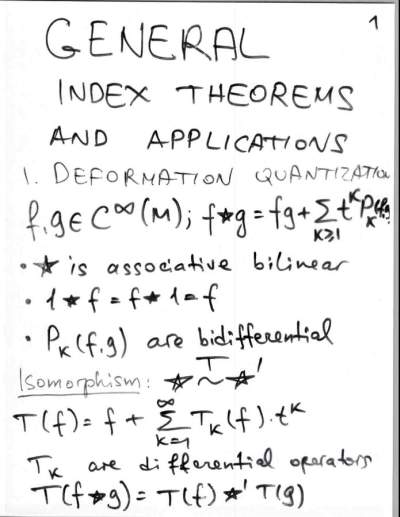 1
GENERAL
INDEX THEOREMS
AND APPLICATIONS
1. DEFORMATION QUANTIZATION
f,g∈C^∞(M); f★g=fg+∑_{k≥1} t^k P_k(f,g)
• ★ is associative bilinear
• 1★f=f★1=f
• P_k(f,g) are bidifferential
Isomorphism: ★ ~^T ★'
T(f)=f+∑_{k=1}^∞ T_k(f)·t^k
T_k are differential operators
T(f★g)=T(f)★'T(g)